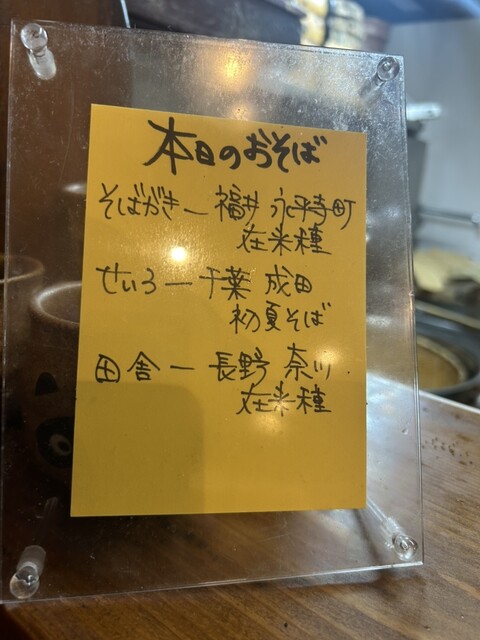 本日のおそば
そばがき ー 福井 永平寺町
在来種
せいろ ー 千葉 成田
初夏そば
田舎 ー 長野 奈川
在来種